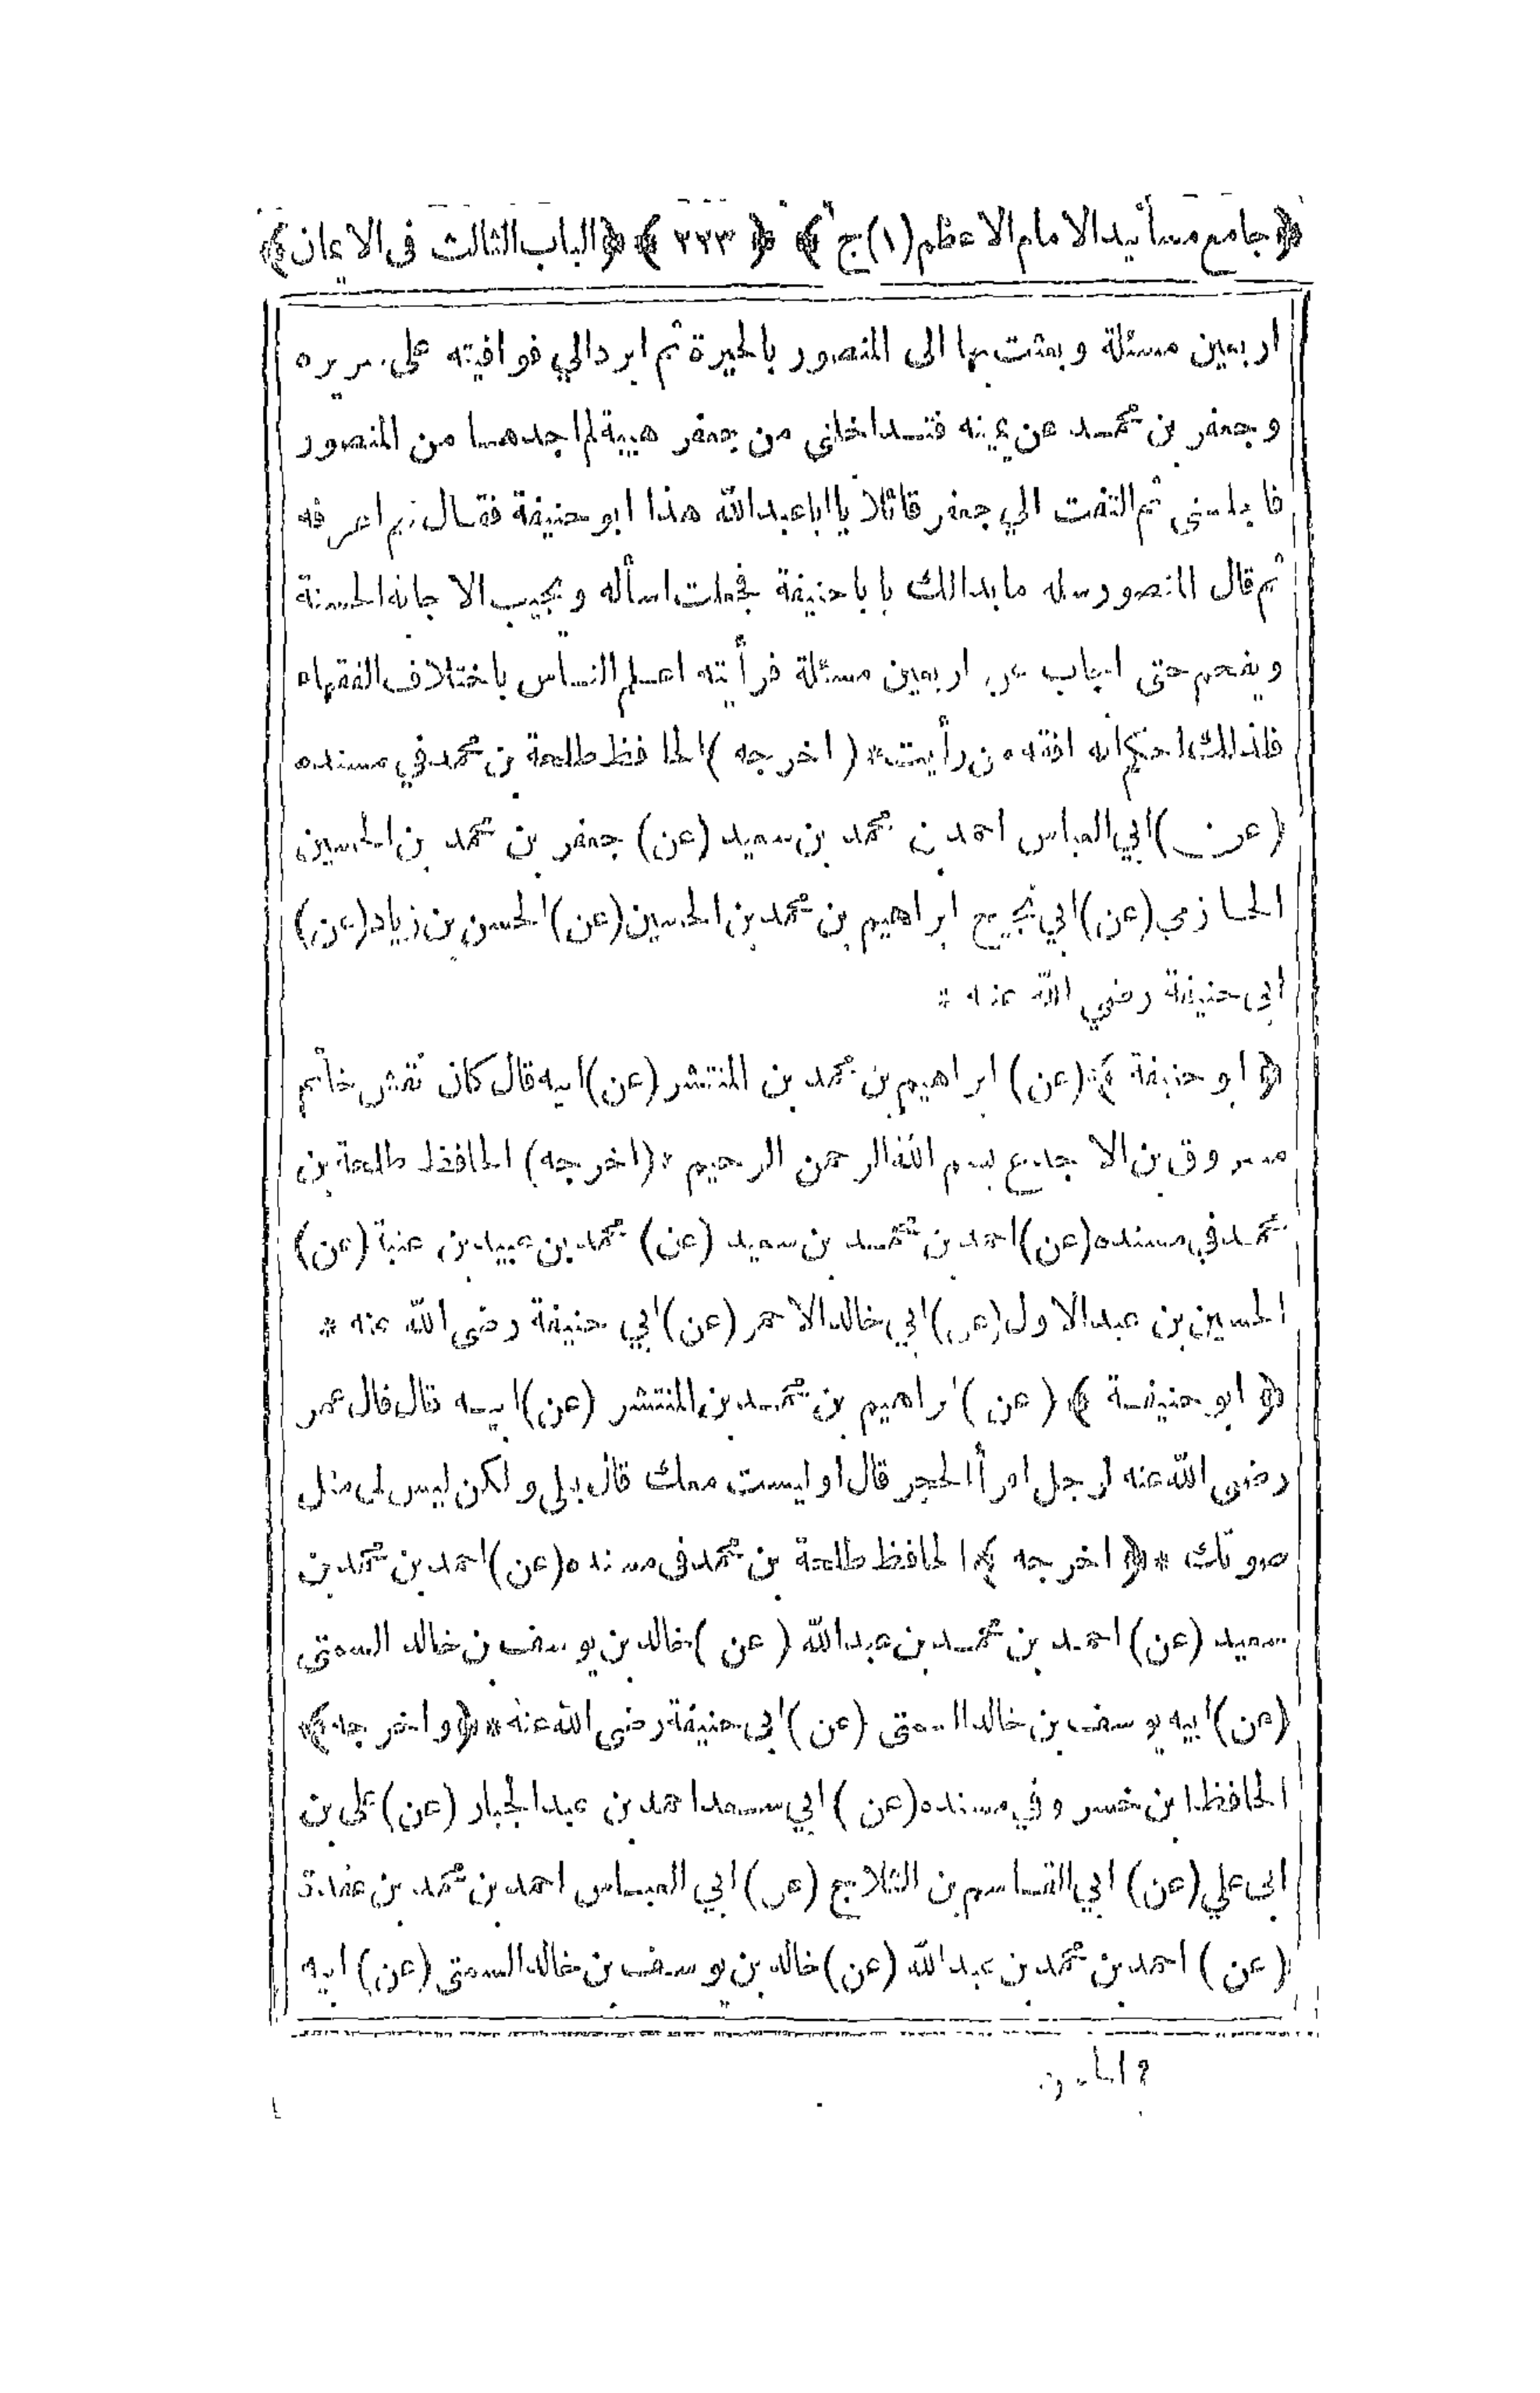 ﴿جامع مسانيد الامام الاعظم (١) ج﴾ ﴿٢٢٣﴾ ﴿الباب الثالث فى الايمان﴾
اربعين مسئلة وبعثت بها الى المنصور بالحيرة ثم ابرد الي فوافيته على سريره
وجعفر بن محمد عن يمينه فتداخلنى من جعفر هيبة لم اجدها من المنصور
فاجلسنى ثم التفت الي جعفر قائلا يا ابا عبد الله هذا ابو حنيفة فقال نعم اعرفه
ثم قال المنصور سله ما بدالك يا با حنيفة فجعلت اسأله ويجيب الاجابة الحسنة
ويفحم حتى اجاب عن اربعين مسئلة فرأيته اعلم الناس باختلاف الفقهاء
فلذلك احكم انه افقه من رأيت * (اخرجه) الحافظ طلحة بن محمد في مسنده
(عن) ابي العباس احمد بن محمد بن سعيد (عن) جعفر بن محمد بن الحسين
الحازمي (عن) ابي نجيح ابراهيم بن محمد بن الحسين (عن) الحسن بن زياد (عن)
ابى حنيفة رضي الله عنه *
﴿ابو حنيفة﴾ (عن) ابراهيم بن محمد بن المنتشر (عن) ابيه قال كان نقش خاتم
مسروق بن الاجدع بسم الله الرحمن الرحيم * (اخرجه) الحافظ طلحة بن
محمد في مسنده (عن) احمد بن محمد بن سعيد (عن) محمد بن عبيد بن عتبة (عن)
الحسين بن عبد الاول (عن) ابي خالد الاحمر (عن) ابي حنيفة رضى الله عنه *
﴿ابو حنيفة﴾ (عن) ابراهيم بن محمد بن المنتشر (عن) ابيه قال قال عمر
رضى الله عنه لرجل اقرأ الحجر قال او ليست معك قال بلى ولكن ليس لى مثل
صوتك * ﴿اخرجه﴾ الحافظ طلحة بن محمد فى مسنده (عن) احمد بن محمد بن
سعيد (عن) احمد بن محمد بن عبد الله (عن) خالد بن يوسف بن خالد السمتى
(عن) ابيه يوسف بن خالد السمتى (عن) ابى حنيفة رضى الله عنه * ﴿واخرجه﴾
الحافظ ابن خسرو في مسنده (عن) ابي سعد احمد بن عبد الجبار (عن) على بن
ابى علي (عن) ابي القاسم بن الثلاج (عن) ابي العباس احمد بن محمد بن عقدة
(عن) احمد بن محمد بن عبد الله (عن) خالد بن يوسف بن خالد السمتى (عن) ابيه